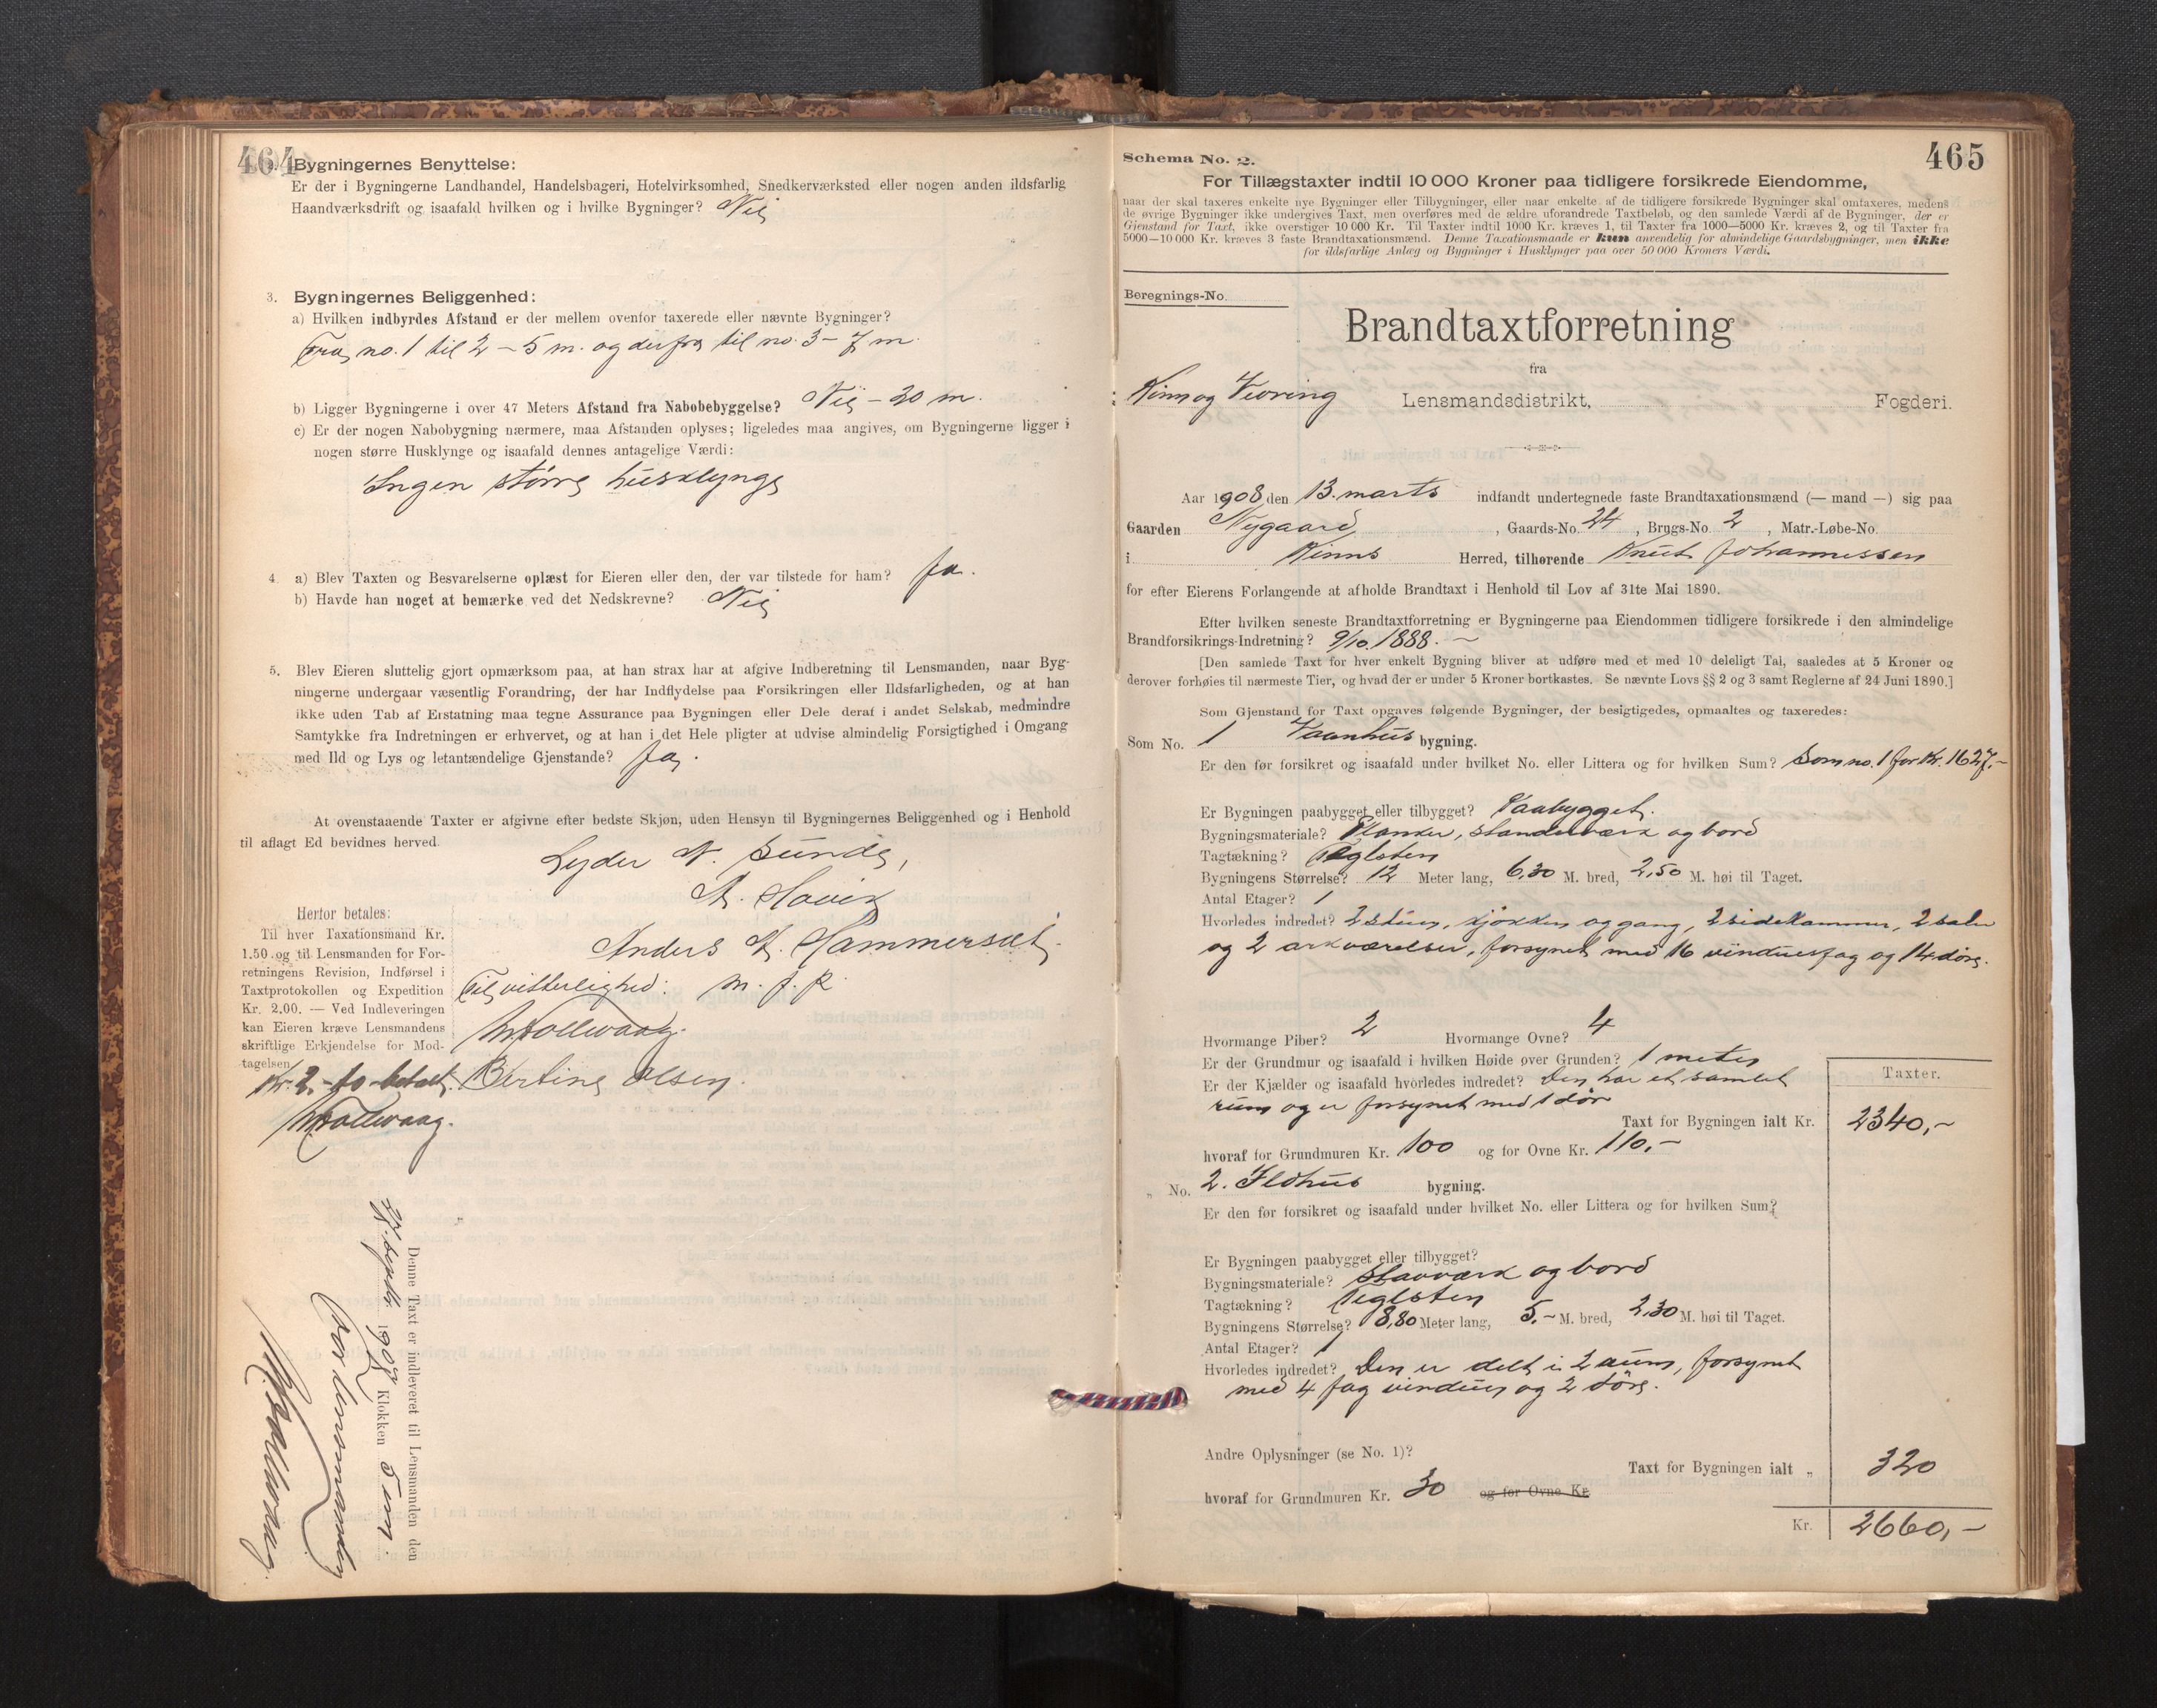 464
2. Bygningernes Benyttelse:
Er der i Bygningerne Landhandel, Handelsbageri, Hotelvirksomhed, Snedkerværksted eller nogen anden ildsfarlig
Haandværksdrift og isaafald hvilken og i hvilke Bygninger? Nei
3. Bygningernes Beliggenhed:
a) Hvilken indbyrdes Afstand er der mellem ovenfor taxerede eller nævnte Bygninger?
Fra no. 1 til 2 - 5 m. og derfra til no. 3 - 7 m.
b) Ligger Bygningerne i over 47 Meters Afstand fra Nabobebyggelse? Nei - 20 m.
c) Er der nogen Nabobygning nærmere, maa Afstanden oplyses; ligeledes maa angives, om Bygningerne ligger i
nogen større Husklynge og isaafald dennes antagelige Værdi:
Ingen større husklynge
4. a) Blev Taxten og Besvarelserne oplæst for Eieren eller den, der var tilstede for ham? Ja.
b) Havde han noget at bemærke ved det Nedskrevne? Nei
5. Blev Eieren sluttelig gjort opmærksom paa, at han strax har at afgive Indberetning til Lensmanden, naar Byg-
ningerne undergaar væsentlig Forandring, der har Indflydelse paa Forsikringen eller Ildsfarligheden, og at han
ikke uden Tab af Erstatning maa tegne Assurance paa Bygningen eller Dele deraf i andet Selskab, medmindre
Samtykke fra Indretningen er erhvervet, og at han i det Hele pligter at udvise almindelig Forsigtighed i Omgang
med Ild og Lys og letantændelige Gjenstande? Ja.
At ovenstaaende Taxter er afgivne efter bedste Skjøn, uden Hensyn til Bygningernes Beliggenhed og i Henhold
til aflagt Ed bevidnes herved.
Lyder N. Sunde,
A. Havik
Anders A. Hammerset.
Til vitterlighed: m. f. P.
M Tollevaag.
Bertine Olsen.
Herfor betales:
Til hver Taxationsmand Kr.
1.50 og til Lensmanden for For-
retningens Revision, Indførsel i
Taxtprotokollen og Expedition
Kr. 2.00. — Ved Indleveringen
kan Eieren kræve Lensmandens
skriftlige Erkjendelse for Mod-
tagelsen.
Kr. 2,- betalt.
M Tollevaag.
Denne Taxt er indleveret til Lensmanden den
1908 Klokken 5 em.
For lensmanden
M Tollevaag
465
Schema No. 2.
For Tillægstaxter indtil 10 000 Kroner paa tidligere forsikrede Eiendomme,
naar der skal taxeres enkelte nye Bygninger eller Tilbygninger, eller naar enkelte af de tidligere forsikrede Bygninger skal omtaxeres, medens
de øvrige Bygninger ikke undergives Taxt, men overføres med de ældre uforandrede Taxtbeløb, og den samlede Værdi af de Bygninger, der er
Gjenstand for Taxt, ikke overstiger 10 000 Kr. Til Taxter indtil 1000 Kr. kræves 1, til Taxter fra 1000—5000 Kr. kræves 2, og til Taxter fra
5000—10 000 Kr. kræves 3 faste Brandtaxationsmænd. Denne Taxationsmaade er kun anvendelig for almindelige Gaardsbygninger, men ikke
for ildsfarlige Anlæg og Bygninger i Husklynger paa over 50 000 Kroners Værdi.
Beregnings-No.
Brandtaxtforretning
fra
Kinn og Vevring Lensmandsdistrikt, Fogderi.
Aar 1908 den 13. marts indfandt undertegnede faste Brandtaxationsmænd (— mand —) sig paa
Gaarden Nygaard, Gaards-No. 24, Brugs-No. 2, Matr.-Løbe-No.
i Kinns Herred, tilhørende Knut Johannessen
for efter Eierens Forlangende at afholde Brandtaxt i Henhold til Lov af 31te Mai 1890.
Efter hvilken seneste Brandtaxtforretning er Bygningerne paa Eiendommen tidligere forsikrede i den almindelige
Brandforsikrings-Indretning? 9/10. 1888. -
[Den samlede Taxt for hver enkelt Bygning bliver at udføre med et med 10 deleligt Tal, saaledes at 5 Kroner og
derover forhøies til nærmeste Tier, og hvad der er under 5 Kroner bortkastes. Se nævnte Lovs §§ 2 og 3 samt Reglerne af 24 Juni 1890.]
Som Gjenstand for Taxt opgaves følgende Bygninger, der besigtigedes, opmaaltes og taxeredes:
Som No. 1 Vaanhus bygning.
Er den før forsikret og isaafald under hvilket No. eller Littera og for hvilken Sum? Som no. 1 for Kr. 1627,-
Er Bygningen paabygget eller tilbygget? Paabygget.
Bygningsmateriale? Planker, standerværk og bord
Tagtækning? Teglsten
Bygningens Størrelse? 12 Meter lang, 6,30 M. bred, 2,50 M. høi til Taget.
Antal Etager? 1
Hvorledes indredet? 2 stuer, kjøkken og gang, 2 sidekammer, 2 saler
og 2 arkværelser, forsynet med 16 vinduesfag og 14 døre.
Hvormange Piber? 2 Hvormange Ovne? 4
Er der Grundmur og isaafald i hvilken Høide over Grunden? 1 meter
Er der Kjælder og isaafald hvorledes indredet? Den har et samlet
rum og er forsynet med 1 dør
Taxter.
Taxt for Bygningen ialt Kr. 2340,-
hvoraf for Grundmuren Kr. 100 og for Ovne Kr. 110,-
„ No. 2. Ildhus bygning.
Er den før forsikret og isaafald under hvilket No. eller Littera og for hvilken Sum?
Er Bygningen paabygget eller tilbygget?
Bygningsmateriale? Stavværk og bord
Tagtækning? Teglsten
Bygningens Størrelse? 8,80 Meter lang, 5,- M. bred, 2,30 M. høi til Taget.
Antal Etager? 1
Hvorledes indredet? Den er delt i 2 rum, forsynet
med 4 fag vinduer og 2 døre.
Andre Oplysninger (se No. 1)?
Taxt for Bygningen ialt „ 320
hvoraf for Grundmuren Kr. 30 og for Ovne Kr.
Kr. 2660,-